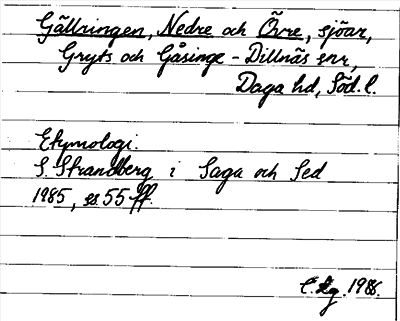 Gällringen, Nedre och Övre, sjöar,
Gryts och Gåsinge-Dillnäs snr,
Daga hd, Söd. l.
Etymologi.
S. Strandberg i Saga och Sed
1985, ss. 55 ff.
1986.